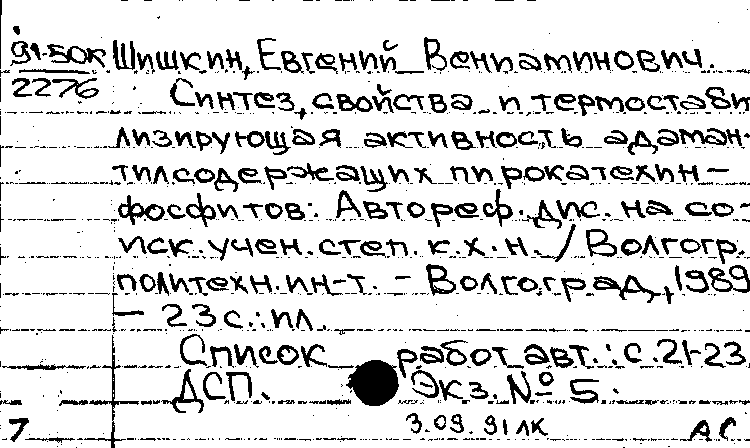 91-50К Шишкин, Евгений Вениаминович.
2276
Синтез, свойства и термостаби
лизирующая активность адаман-
тилсодержащих пирокатехин-
фосфитов: Автореф. дис. на со-
иск. учен. степ. к. х. н. / Волгогр.
политехн. ин-т. - Волгоград, 1989
- 23 с.: ил.
Список работ авт.: с. 21-23
ДСП. Экз. № 5.
3.09.91 ЛК
7 АС